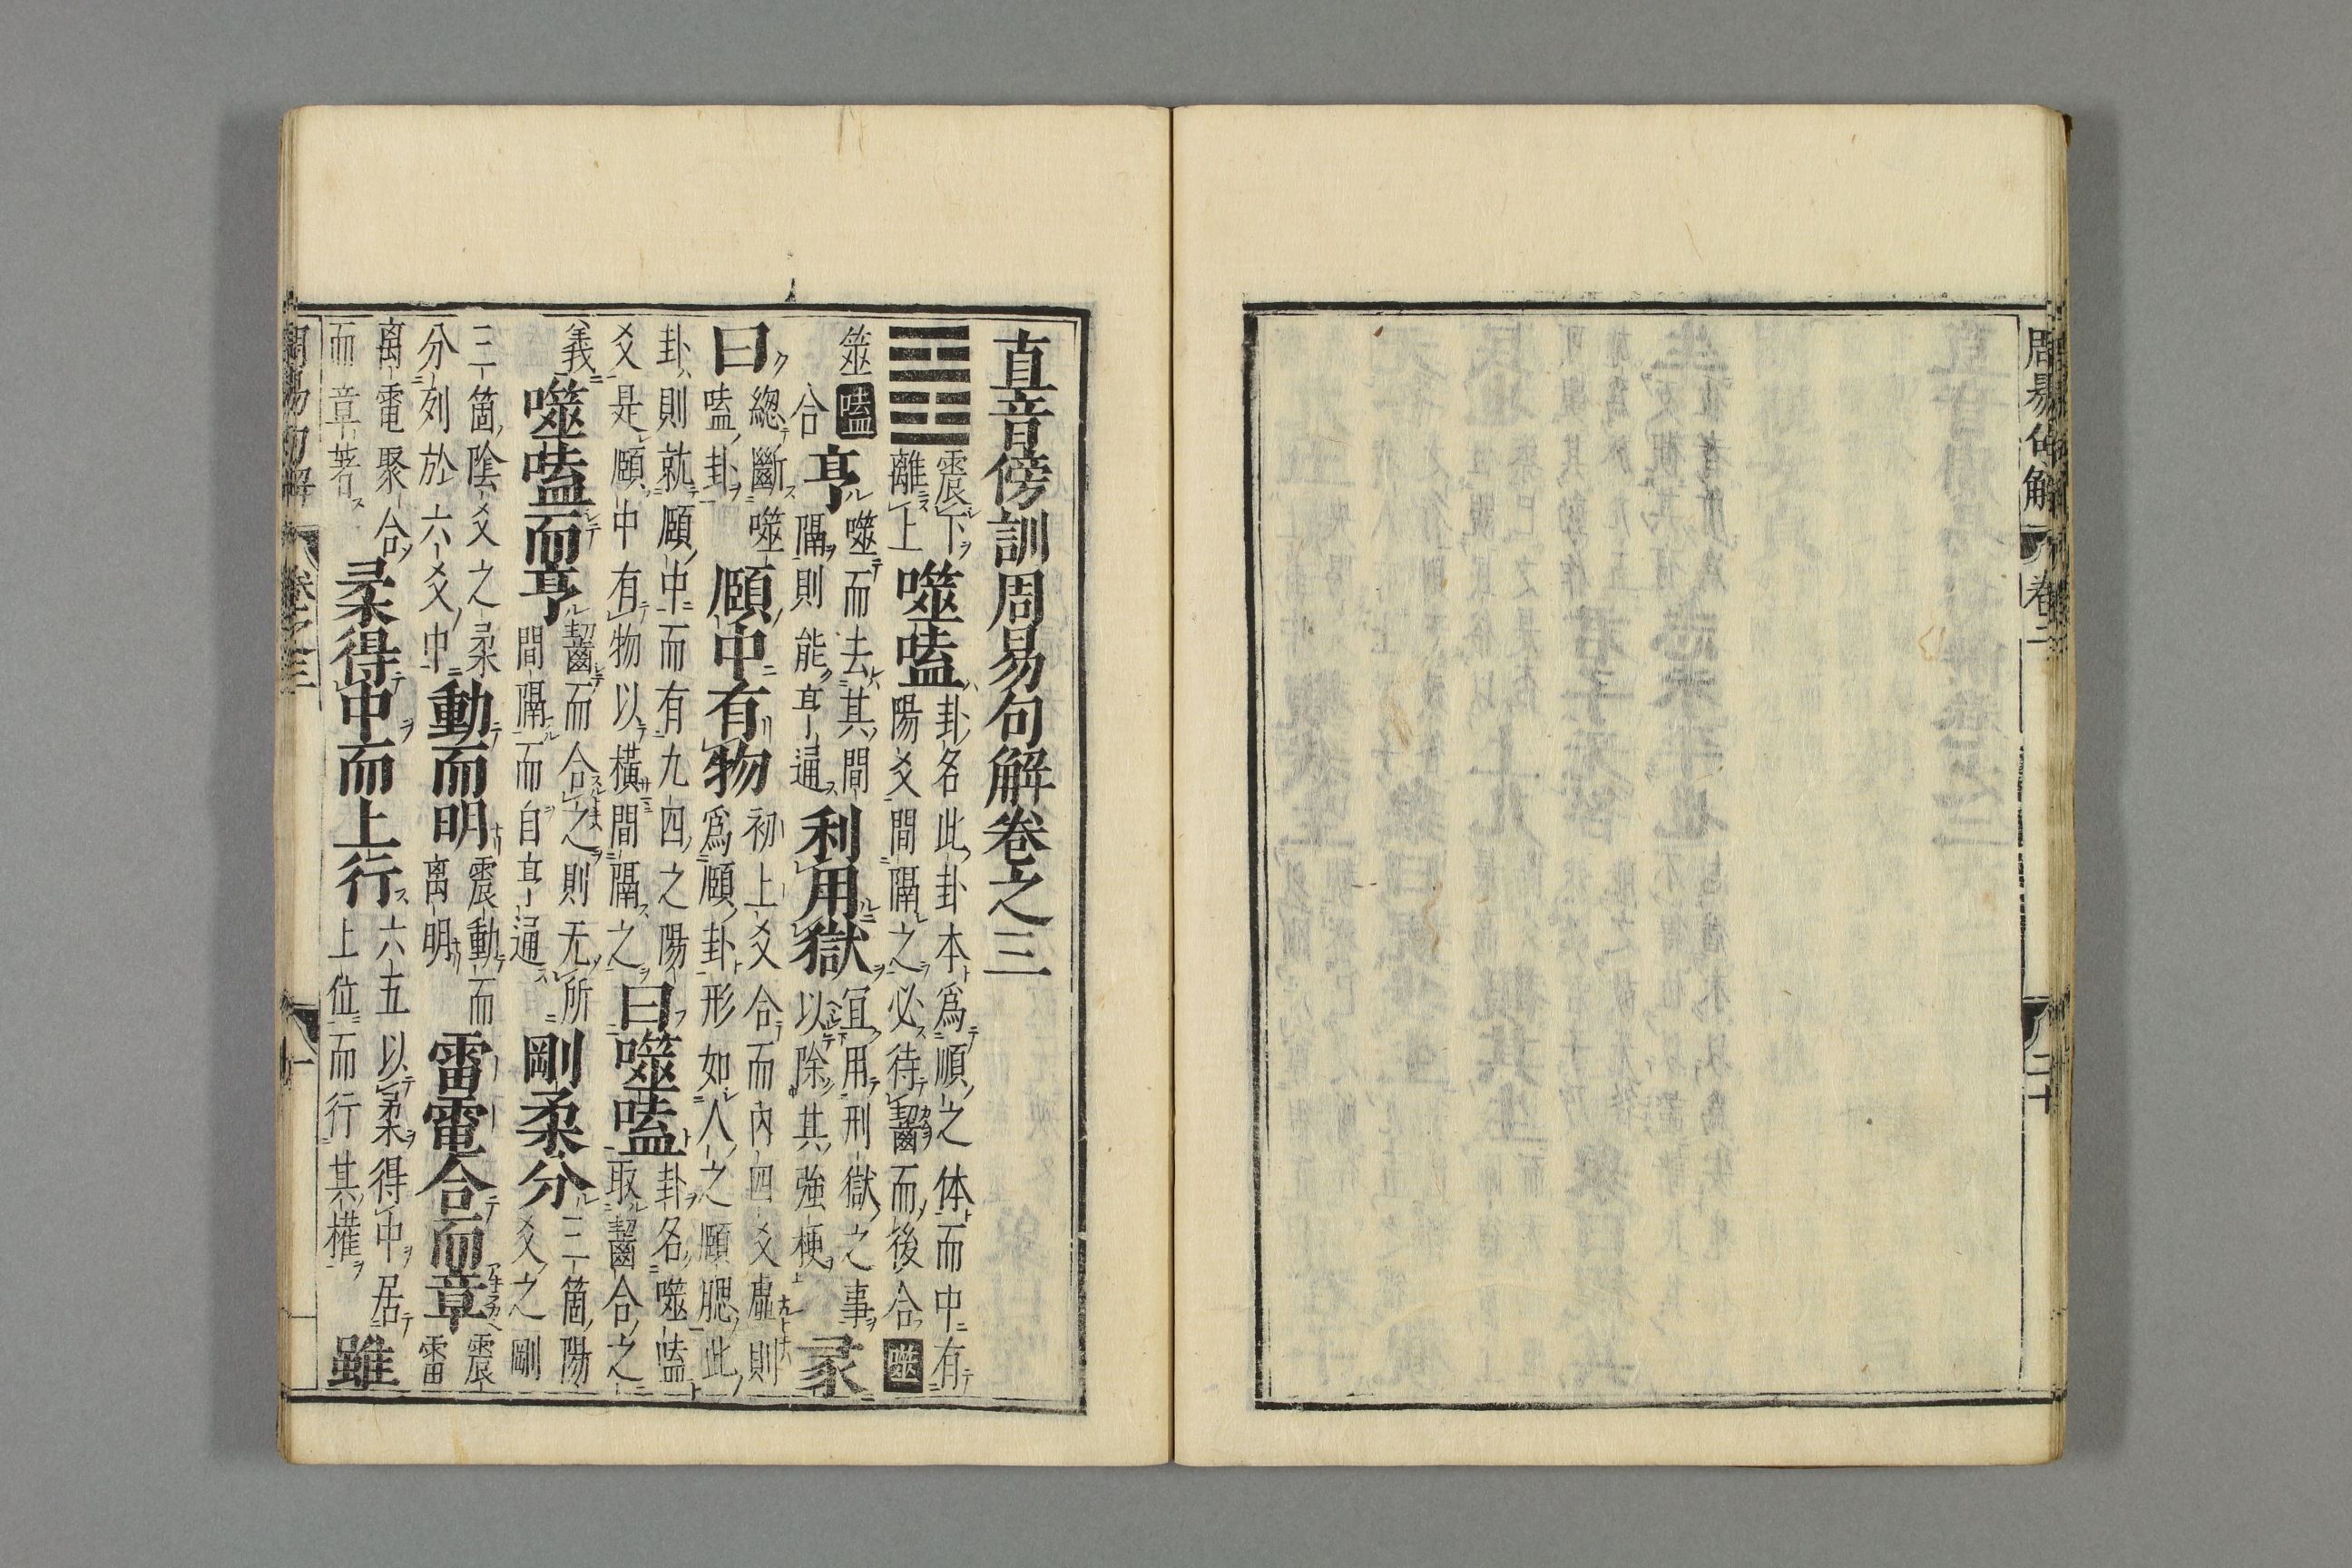 周易句解 卷二 二十
直音傍訓周易句解卷之三
䷔ 震下離上 噬嗑 卦名此卦本爲順之体而中有陽爻間隔之必待齧而後合 噬
筮 嗑 合 亨 噬而去其間隔則能亨通 利用獄 宜用刑獄之事以除其強梗 彖
曰 緫斷噬嗑卦 頤中有物 初上爻合而內四爻虛則爲頤卦形如人之頤腮此
卦則就頤中而有九四之陽爻是頤中有物以橫間隔之 曰噬嗑 卦名噬嗑取齧合之
義 噬嗑而亨 齧而合之則无所間隔而自亨通 剛柔分 三箇陽爻之剛
三箇陰爻之柔分列於六爻中 動而明 震動而离明 雷電合而章 震雷
离電聚合而章著 柔得中而上行 六五以柔得中居上位而行其權 雖
周易句解 卷之三 一